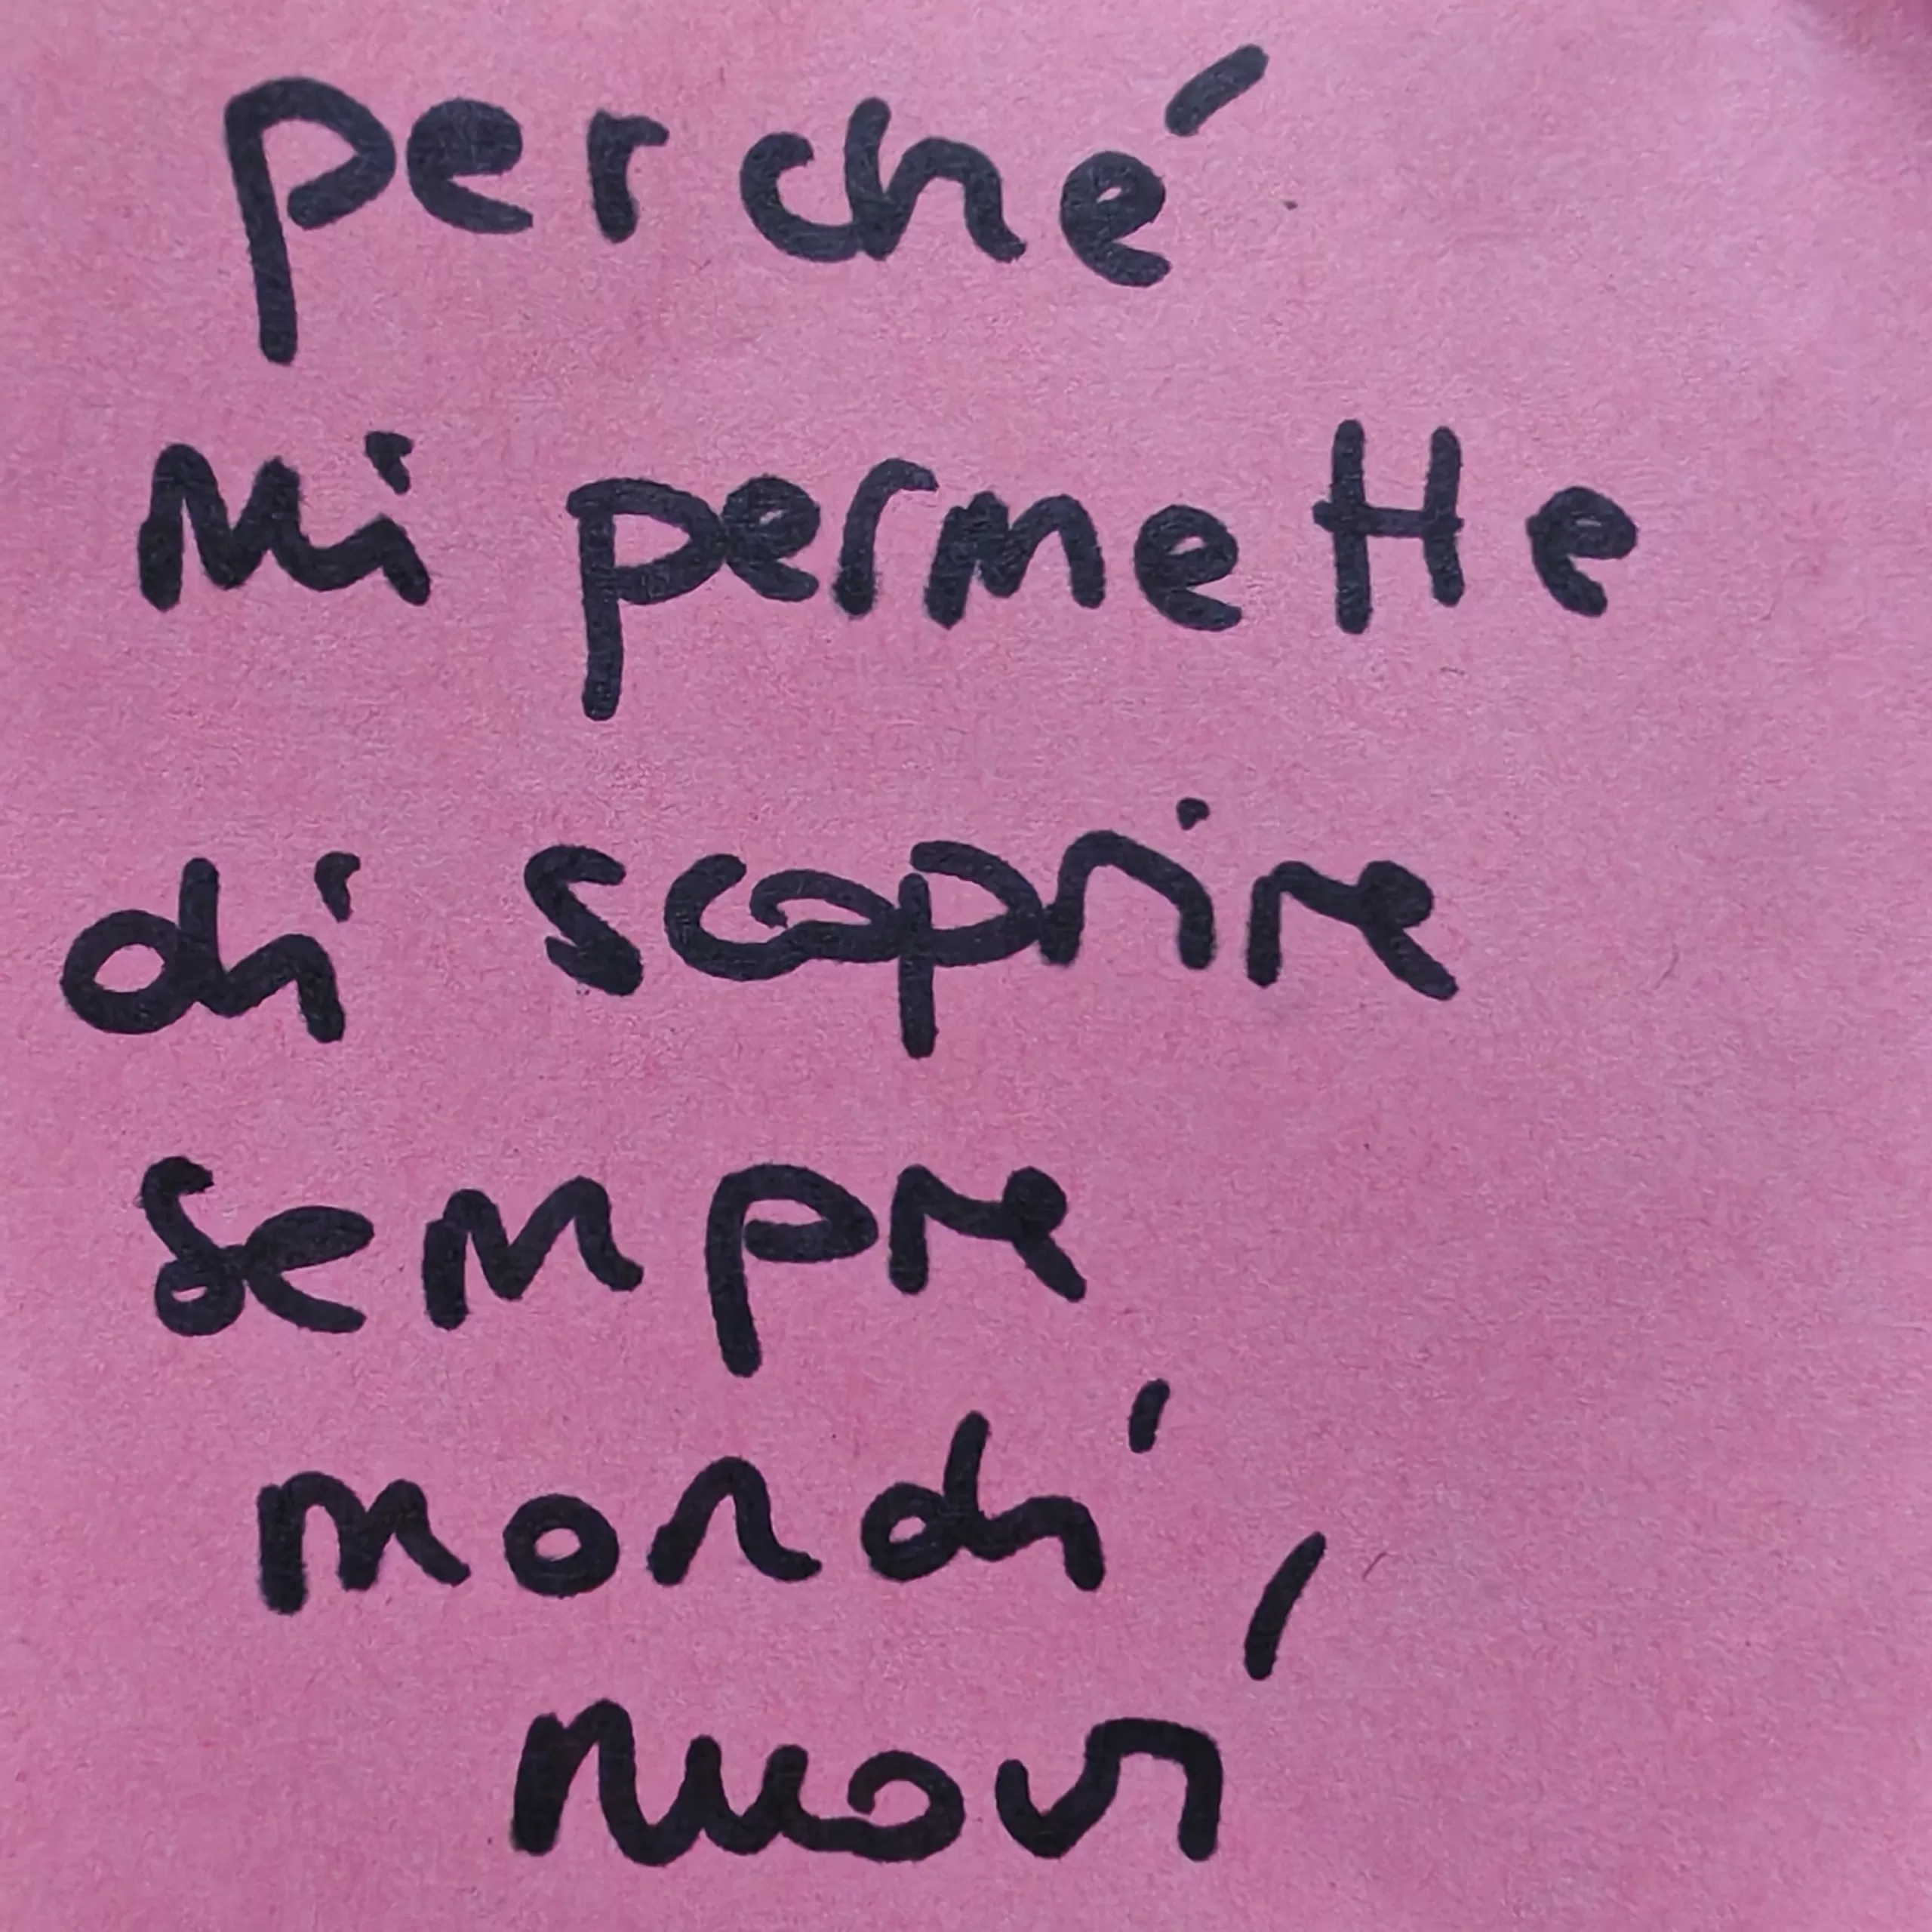 perché
mi permette
di scoprire
sempre
mondi
nuovi